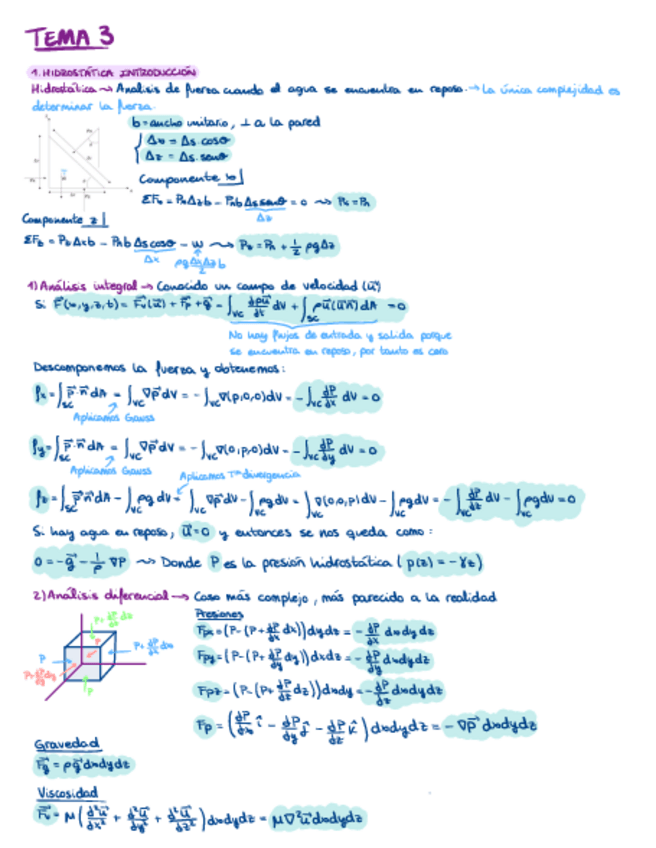 TEMA 3
1. HIDROSTÁTICA INTRODUCCIÓN
Hidrostática → Analisis de fuerza cuando el agua se encuentra en reposo. → La única complejidad es
determinar la fuerza.
b = ancho unitario, ⊥ a la pared
Δx = Δs.cosθ
Δz = Δs.senθ
Componente x|
ΣFx = PxΔzb - Pnb Δs senθ = 0 → Px = Pn
Δz
Componente z|
ΣFz = PzΔxb - Pnb Δs cosθ - w → Pz = Pn + 1/2 ρgΔz
Δx ρg ΔxΔz/2 b
1) Análisis integral → Conocido un campo de velocidad (u⃗)
Si F⃗(x,y,z,t) = F⃗v(u⃗) + F⃗p + g⃗ - ∫vc dρu⃗/dt dV + ∫sc ρu⃗(u⃗n⃗)dA = 0
No hay flujos de entrada y salida porque
se encuentra en reposo, por tanto es cero
Descomponemos la fuerza y obtenemos:
fx = ∫sc p⃗·n⃗ dA = ∫vc ∇p⃗ dV = -∫vc ∇(p,0,0)dV = -∫vc dP/dx dV = 0
Aplicamos Gauss
fy = ∫sc p⃗·n⃗ dA = ∫vc ∇p⃗ dV = -∫vc ∇(0,p,0)dV = -∫vc dP/dy dV = 0
Aplicamos Gauss Aplicamos Tª divergencia
fz = ∫sc p⃗ n⃗ dA - ∫vc ρg dV = ∫vc ∇p⃗ dV - ∫vc ρg dV = ∫vc ∇(0,0,p)dV - ∫vc ρg dV = -∫vc dP/dz dV - ∫vc ρg dV = 0
Si hay agua en reposo, u⃗ = 0 y entonces se nos queda como:
0 = -g⃗ - 1/ρ ∇P → Donde P es la presión hidrostática ( p(z) = -γz )
2) Análisis diferencial → Caso más complejo, más parecido a la realidad
Presiones
P + dP/dz dz
Fpx = (P - (P + dP/dx dx)) dy dz = - dP/dx dx dy dz
P
P + dP/dx dx
Fpy = (P - (P + dP/dy dy)) dx dz = - dP/dy dx dy dz
P + dP/dy dy
P
Fpz = (P - (P + dP/dz dz)) dx dy = - dP/dz dx dy dz
Fp = (dP/dx î - dP/dy ĵ - dP/dz k̂) dx dy dz = - ∇p⃗ dx dy dz
Gravedad
F⃗g = ρg⃗ dx dy dz
Viscosidad
F⃗v = μ(d²u⃗/dx² + d²u⃗/dy² + d²u⃗/dz²) dx dy dz = μ∇²u⃗ dx dy dz